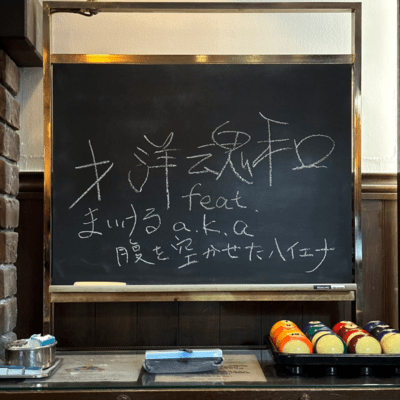 才洋魂和
feat.
まいける a.k.a
腹を空かせたハイエナ